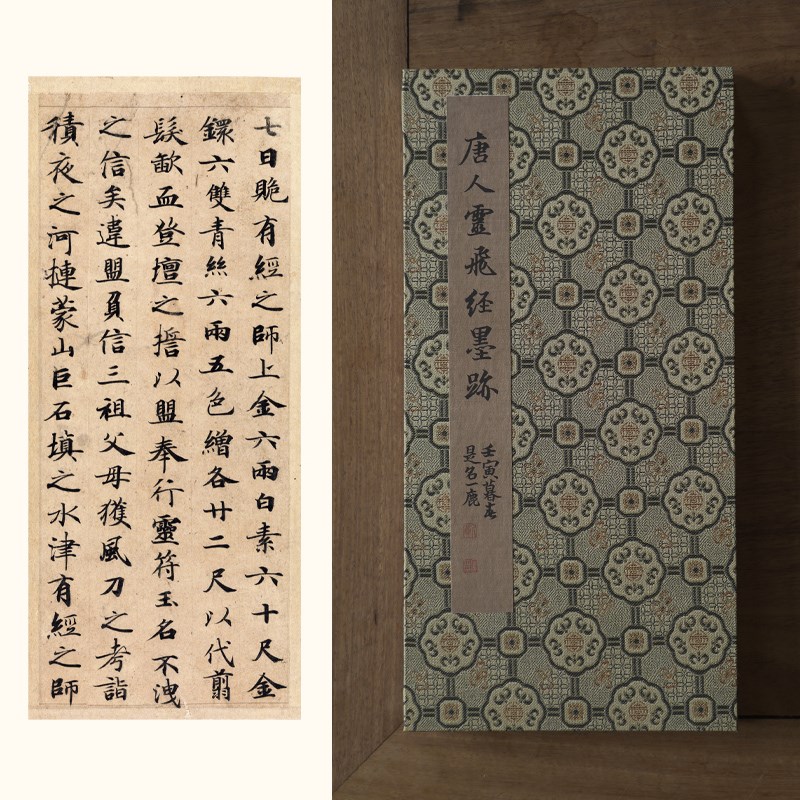 七日䞈有經之師上金六兩白素六十尺金
鐶六雙青絲六兩五色繒各廿二尺以代翦
髮歃血登壇之誓以盟奉行靈符玉名不洩
之信矣違盟負信三祖父母獲風刀之考詣
積夜之河摙蒙山巨石填之水津有經之師
唐人靈飛经墨跡
壬寅暮春
是名一鹿